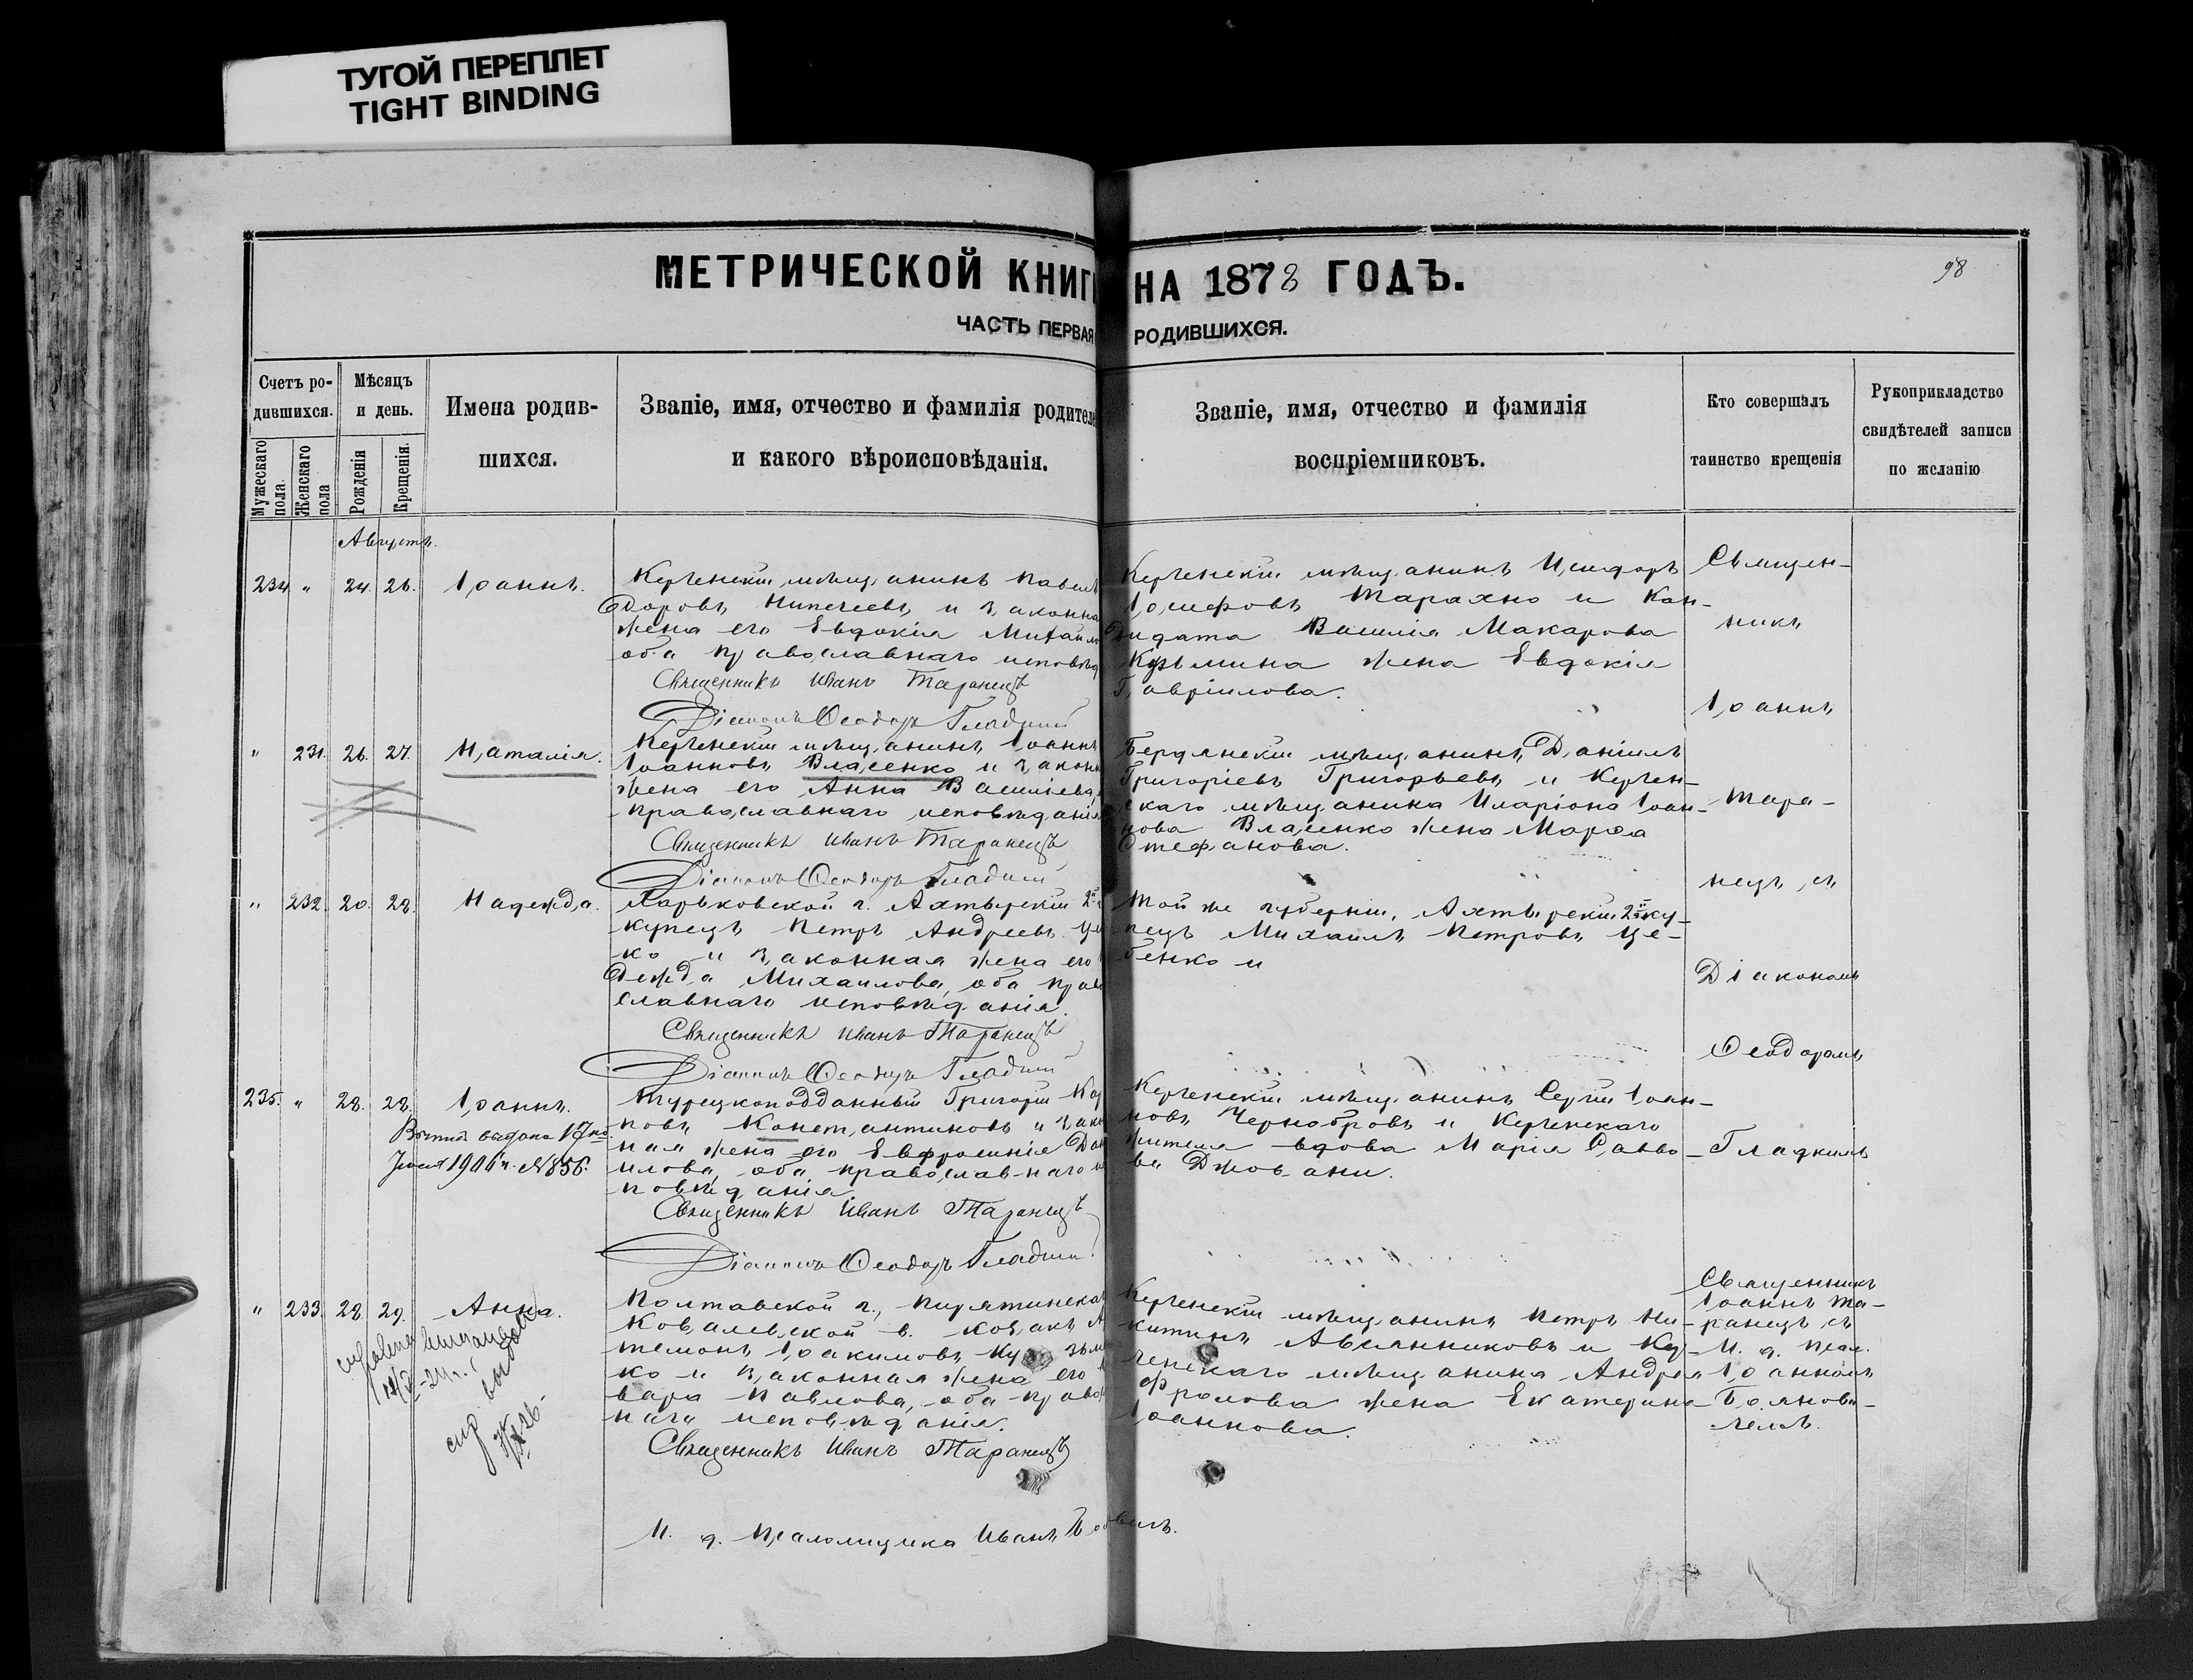 ТУГОЙ ПЕРЕПЛЕТ
TIGHT BINDING
МЕТРИЧЕСКОЙ КНИГ НА 1878 ГОДЪ.
98
ЧАСТЬ ПЕРВАЯ РОДИВШИХСЯ.
Счетъ ро-
дившихся.
Мужескаго пола.
Женскаго пола
Мѣсяцъ
и день.
Рожденія
Крещенія.
Имена родив-
шихся.
Званіе, имя, отчество и фамилія родителе
и какого вѣроисповѣданія.
Званіе, имя, отчество и фамилія
воспріемниковъ.
Кто совершалъ
таинство крещенія
Рукоприкладство
свидѣтелей записи
по желанію
Августъ.
234 " 24. 26. Іоаннъ.
Керченскій мѣщанинъ Павелъ
Ѳдоровъ и законна
жена его Евдокія Михаил
оба православнаго исповѣд
Священникъ Иванъ Таранецъ
Діаконъ Ѳеодоръ Гладкий
Керченскій мѣщанинъ Исидоръ
Іосифовъ Тарахно и Кан-
дидата Василія Макарова
Кузьмина жена Евдокія
Гавріилова.
" 231. 26. 27. Наталія.
Керченскій мѣщанинъ Іоаннъ
Іоанновъ Власенко и закон
жена его Анна Васильева,
православнаго исповѣданія
Священникъ Иванъ Таранецъ
Діаконъ Ѳеодоръ Гладкий
Бердянскій мѣщанинъ Даніилъ
Григоріевъ Григорьевъ и Керчен-
скаго мѣщанина Иларіона Іоан-
нова Власенко жена Марѳа
Стефанова.
" 232. 20. 28. Надежда.
Харьковской г. Ахтырскій 2й
купецъ Петръ Андреевъ Це
ко и законная жена его
дежда Михаилова, оба прав
славнаго исповѣданія.
Священникъ Иванъ Таранецъ
Діаконъ Ѳеодоръ Гладкий
Той же губерніи, Ахтырскій 2й ку-
пецъ Михаилъ Петровъ Це-
бенко и
235. " 28. 28. Іоаннъ.
выдана 17го
1906 г. № 856.
Турецкоподданный Григорій
новъ Константиновъ и зако
ная жена его Евфросинія Дан
илова, оба православнаго и
повѣданія
Священникъ Иванъ Таранецъ
Діаконъ Ѳеодоръ Гладкий
Керченскій мѣщанинъ Сергій Іоан-
новъ Чернобровъ и Керченскаго
жителя вдова Марія Савво-
ва Джовани.
" 233. 28. 29. Анна.
Полтавской г., Пирятинска
Ковалевской в. козакъ
темонъ Іоакимовъ
ко и законная жена его
вара Павлова, оба право
наго исповѣданія.
Священникъ Иванъ Таранецъ
И. д. Псаломщика Иванъ
Керченскій мѣщанинъ Петръ Ни-
китинъ Авсянниковъ и Кер-
ченскаго мѣщанина Андрея
Фролова жена Екатерина
Іоаннова.
Священ-
никъ
Іоаннъ
Тара-
нецъ, съ
Діакономъ
Ѳеодоромъ
Гладкимъ
Священникъ
Іоаннъ Та-
ранецъ съ
И. д. псал.
Іоанномъ